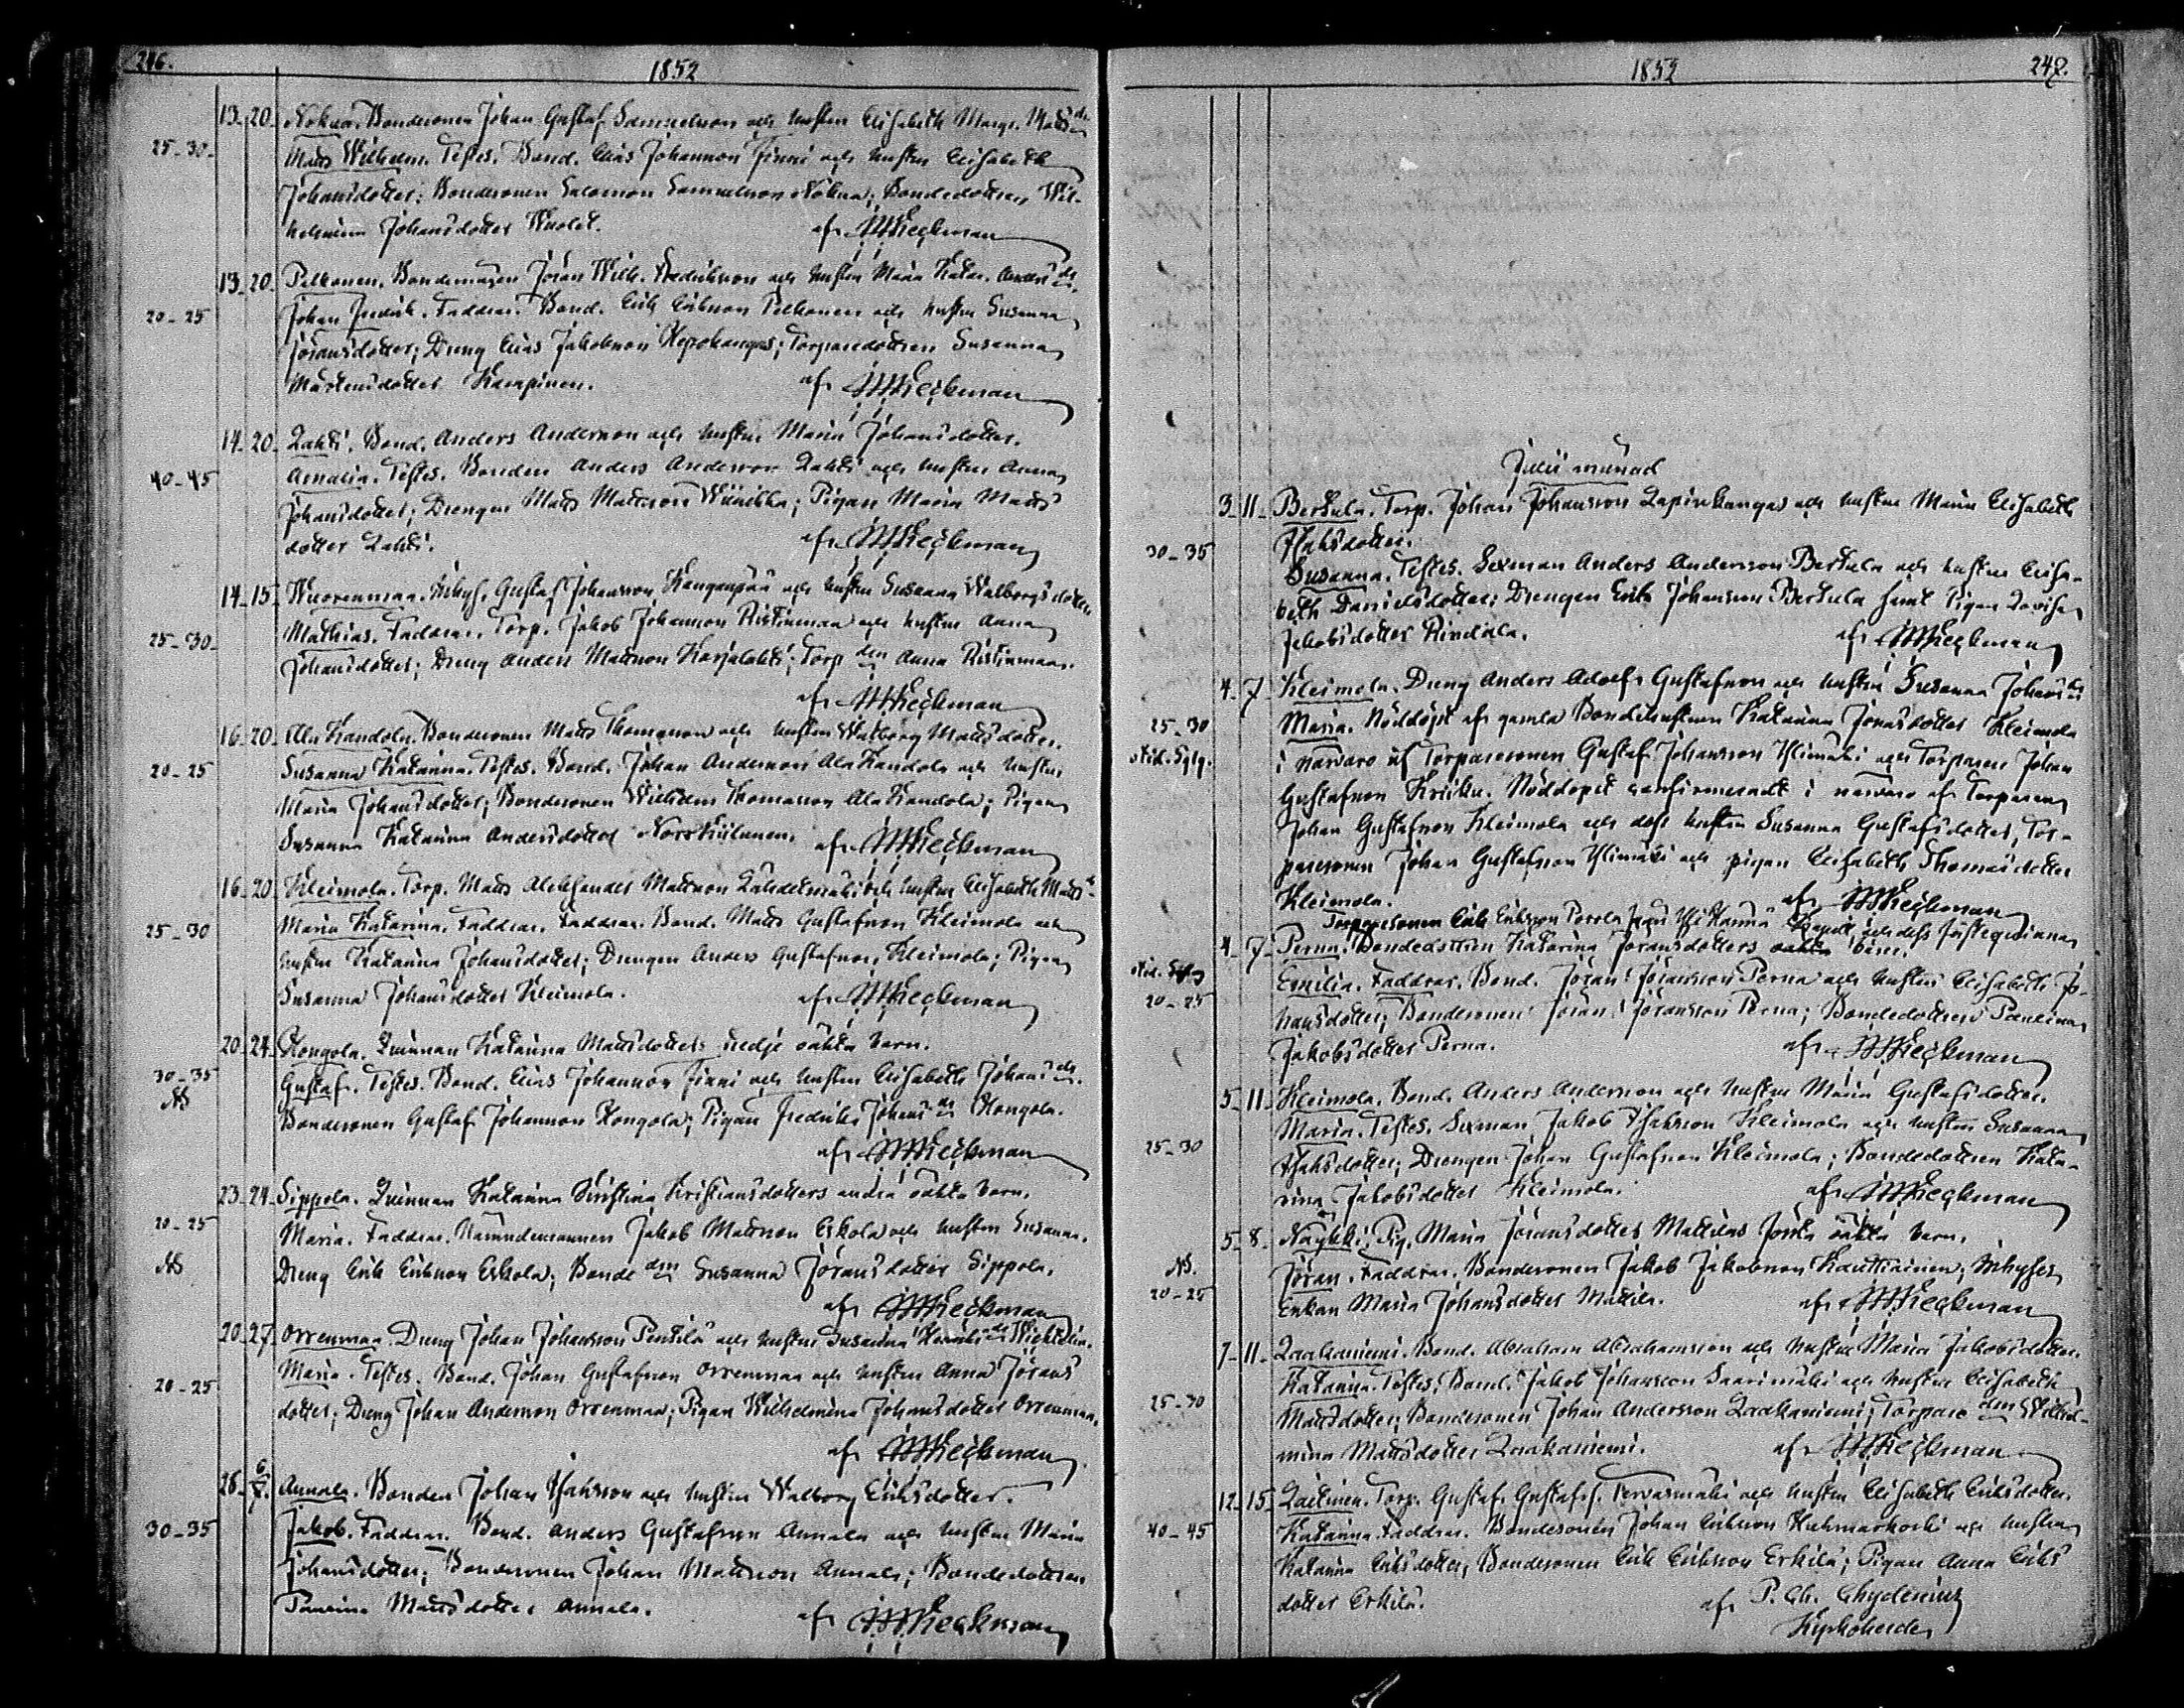 246.
1852
13. 20. Nokua. Bondesonen Johan Gustaf Samuelsson och hustru Elisabeth Margr. Matsdr
25-30. Matts Wilhelm. Testes. Bond. Elias Johansson Finni och hustru Elisabeth
Johansdotter; Bondesonen Salomon Samuelsson Nokua; Bondedottren Wil-
helmina Johansdotter Wuolet.
af
13. 20. Pelkonen. Bondemågen Jöran Wilh. Fredriksson och hustru Maria Katar. Andersdr.
20-25 Johan Fredrik. Faddrar. Bond. Erik Eriksson Pelkonen och hustru Susanna
Jöransdotter; Dreng Elias Jakobsson Hepokangas; Torparedottren Susanna
Mårtensdotter Karapinen.
af
14. 20. Lahti. Bond. Anders Andersson och hustru Maria Johansdotter.
40-45 Amalia. Testes. Bonden Anders Andersson Lahti och hustru Anna
Johansdotter; Drengen Matts Mattsson Wiinikka; Pigan Maria Matts-
dotter Lahti.
af
14. 15. Wuorenmaa. Inhys. Gustaf Johansson Kangaspää och hustru Susanna Walborgsdotter
25-30. Mathias. Faddrar. Torp. Jakob Johansson Ristinmaa och hustru Anna
Johansdotter; Dreng Anders Mattsson Karjalahti; Torp den Anna Ristinmaa.
af
16. 20. Ala Kandola. Bondesonen Matts Thomasson och hustru Walborg Mattsdotter.
20-25 Susanna Katarina. Testes. Bond. Johan Andersson Ala Kandola och hustru
Maria Johansdotter; Bondesonen Wilhelm Thomasson Ala Kandola; Pigan
Susanna Katarina Andersdotter Norrkiilunen. af
16. 20. Kleimola. Torp. Matts Alexander Mattsson Lähdemäki och hustru Elisabeth Mattsdr
25-30 Maria Katarina. Faddrar. Faddrar. Bond. Matts Gustafsson Kleimola och
hustru Katarina Johansdotter; Drengen Anders Gustafsson Kleimola; Pigan
Susanna Johansdotter Kleimola. af
20. 24. Hongola. Quinnan Katarina Mattsdotters tredje oäkta barn.
30-35 Gustaf. Testes. Bond. Elias Johansson Finni och hustru Elisabeth Johansdr.
Bondesonen Gustaf Johansson Hongola; Pigan Fredrika Johansdr Hongola.
af
23. 24. Sippola. Quinnan Katarina Kristina Kristiansdotters andra oäkta barn.
20-25 Maria. Faddrar. Nämndemannen Jakob Mattsson Eskola och hustru Susanna.
Dreng Erik Eriksson Eskola; Bonde den Susanna Jöransdotter Sippola.
af
20. 27. Orrenmaa. Dreng Johan Johansson Penttilä och hustru Susanna
20-25 Maria. Testes. Bond. Johan Gustafsson Orrenmaa och hustru Anna Jörans
dotter; Dreng Johan Andersson Orrenmaa; Pigan Wilhelmina Johansdotter Orrenmaa.
af
26. 6/7. Annala. Bonden Johan Isaksson och hustru Walborg Eriksdotter.
30-35 Jakob. Faddrar. Bond. Anders Gustafsson Annala och hustru Maria
Johansdotter; Bondesonen Johan Mattsson Annala; Bondedottren
Paulina Mattsdotter Annala.
af
1852
247.
Julii månad
3. 11. Berkula. Torp. Johan Johansson Lapinkangas och hustru Maria Elisabeth
30-35 Isaksdotter.
Susanna. Testes. Sexman Anders Andersson Berkula och hustru Elisa-
beth Danielsdotter; Drengen Erik Johansson Berkula samt Pigan Lovisa
Jakobsdotter Rindala. af
4. 7. Kleimola. Dreng Anders Adolf Gustafsson och hustru Susanna Johansdr
25-30 Maria. Nöddöpt af gamla Bondehustrun Katarina Jonasdotter Kleimola
i närvaro af Torparesonen Gustaf Johansson Ylimäki och Torparen Johan
Gustafsson Kriiku. Nöddopet confirmeradt i närvaro af Torparen
Johan Gustafsson Kleimola och dess hustru Susanna Gustafsdotter, Tor-
paresonen Johan Gustafsson Ylimäki och pigan Elisabeth Thomasdotter
Kleimola. af
Torparesonen Erik Eriksson
4. 7. Perna. Bondedottren Katarina Jöransdotters oäkta barn.
20-25 Emilia. Faddrar. Bond. Jöran Jöransson Perna och hustru Elisabeth Jo-
hansdotter; Bondesonen Jöran Jöransson Perna; Bondedottren Paulina
Jakobsdotter Perna. af
5. 11. Kleimola. Bond. Anders Andersson och hustru Maria Gustafsdotter.
25-30 Maria. Testes. Sexman Jakob Isaksson Kleimola och hustru Susanna
Isaksdotter; Drengen Johan Gustafsson Kleimola; Bondedottren Kata-
rina Jakobsdotter Kleimola. af
5. 8. Näykki. Pig. Maria Jöransdotter Mattilas första oäkta barn.
20-25 Jöran. Faddrar. Bondesonen Jakob Jakobsson Kauttiainen; Inhyses
Enkan Maria Johansdotter Mattila. af
7. 11. Laakaniemi. Bond. Abraham Abrahamsson och hustru Maria Jakobsdotter.
25-30 Katarina. Testes. Bond. Jakob Johansson Saarimäki och hustru Elisabeth
Mattsdotter; Bondesonen Johan Andersson Laakaniemi; Torpare den Wilhel-
mina Mattsdotter Laakaniemi. af
12. 15. Laitinen. Torp. Gustaf Gustafss. Tervasmäki och hustru Elisabeth Eriksdotter.
40-45 Katarina. Faddrar. Bondesonen Johan Eriksson Huhmarkoski och hustru
Katarina Eriksdotter, Bondesonen Erik Eriksson Erkilä; Pigan Anna Eriks
dotter Erkilä. af P. Ch. Chydenius
Kyrkoherde